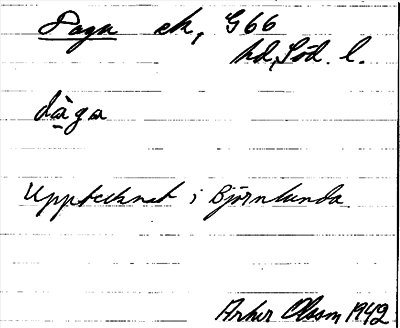 Daga sk, G66
hd, Söd. l.
dàga
Upptecknat i Björnlunda
Arher Olsson 1942